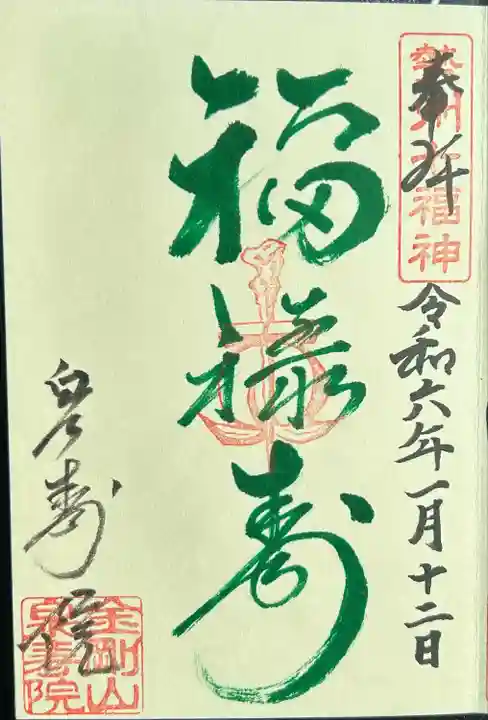 奉拝
勢州七福神
令和六年一月十二日
福禄寿
泉寿院
金剛山
泉寿院